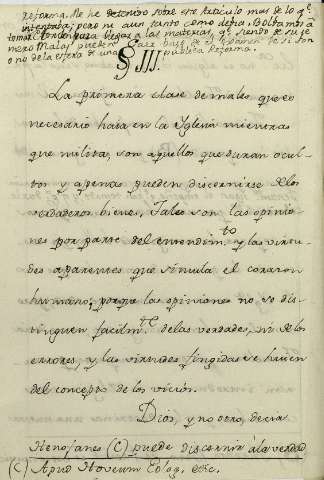 reforma. Me he detenido sobre este Articulo mas de lo q.e
intentaba; pero ni aun tanto como debia. Boltamos à
tomar para llegar a las materias, q.e siendo de su
mero Malas pueden base de el Examen de si son
o no de la esfera de una publica Reforma.
§ III.
La primera clase de males, que es
necesario haia en la Yglesia mientras
que milita, son aquellos que duran ocul-
tos y apenas pueden discernirse de los
verdaderos bienes. Tales son las opinio-
nes por parte del entendim.to y las virtu-
des aparentes que simula el corazon
humano; porque las opiniones no se dis-
tinguen facilm.te de las verdades, ni de los
errores, y las virtudes fingidas se huien
del concepto de los vicios.
Dios, y no otro, decia
Xenofanes (C) puede discernir à la verdad
(C) Apud Stoveum Eclog. etic.